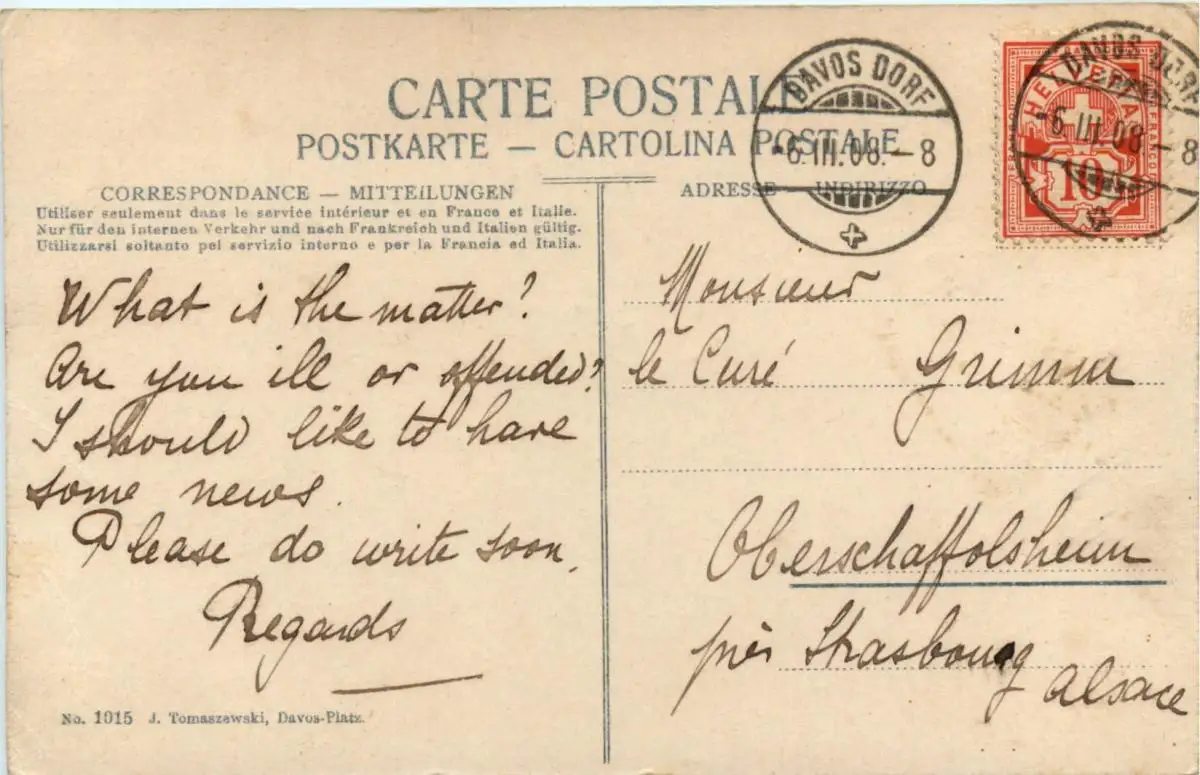 CARTE POSTALE
POSTKARTE — CARTOLINA POSTALE
CORRESPONDANCE — MITTEILUNGEN
Utiliser seulement dans le service intérieur et en France et Italie.
Nur für den internen Verkehr und nach Frankreich und Italien gültig.
Utilizzarsi soltanto pel servizio interno e per la Francia ed Italia.
What is the matter?
Are you ill or offended?
I should like to have
some news.
Please do write soon.
Regards
No. 1015 J. Tomaszewski, Davos-Platz.
ADRESSE INDIRIZZO
DAVOS DORF
-6.III.08.-8
HELVETIA
FRANCO
10
DAVOS DORF
-6.III.08-8
Monsieur
le Curé Grimm
Oberschaffolsheim
près Strasbourg
Alsace